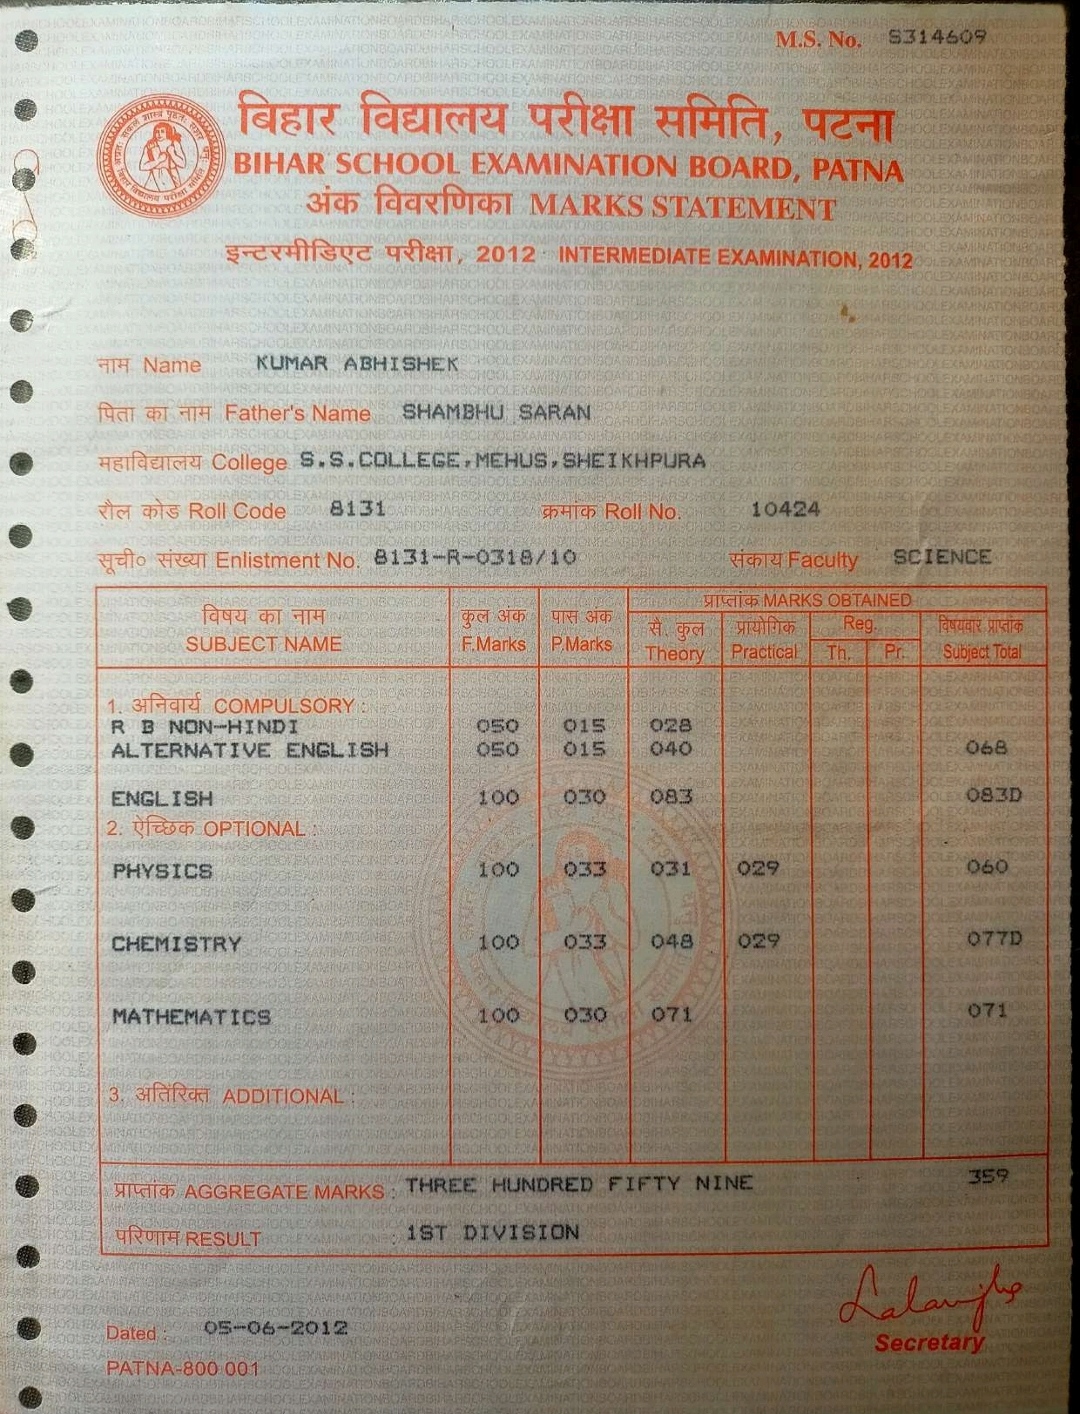 M.S. No. S314609
बिहार विद्यालय परीक्षा समिति, पटना
BIHAR SCHOOL EXAMINATION BOARD, PATNA
अंक विवरणिका MARKS STATEMENT
इन्टरमीडिएट परीक्षा, 2012 INTERMEDIATE EXAMINATION, 2012
नाम Name KUMAR ABHISHEK
पिता का नाम Father's Name SHAMBHU SARAN
महाविद्यालय College S.S.COLLEGE,MEHUS,SHEIKHPURA
रौल कोड Roll Code 8131 क्रमांक Roll No. 10424
सूची० संख्या Enlistment No. 8131-R-0318/10 संकाय Faculty SCIENCE
विषय का नाम कुल अंक पास अंक प्राप्तांक MARKS OBTAINED
SUBJECT NAME F.Marks P.Marks सै. कुल प्रायोगिक Reg. विषयवार प्राप्तांक
Theory Practical Th. Pr. Subject Total
1. अनिवार्य COMPULSORY :
R B NON-HINDI 050 015 028
ALTERNATIVE ENGLISH 050 015 040 068
ENGLISH 100 030 083 083D
2. ऐच्छिक OPTIONAL :
PHYSICS 100 033 031 029 060
CHEMISTRY 100 033 048 029 077D
MATHEMATICS 100 030 071 071
3. अतिरिक्त ADDITIONAL :
प्राप्तांक AGGREGATE MARKS : THREE HUNDRED FIFTY NINE 359
परिणाम RESULT : 1ST DIVISION
Dated : 05-06-2012
Secretary
PATNA-800 001